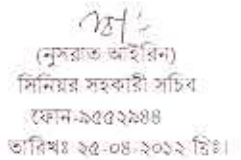 (নুসরাত আইরিন)
সিনিয়র সহকারী সচিব
ফোন-৯৫৫২৯৪৪
তারিখঃ ২৫-০৪-২০১২ খ্রিঃ।